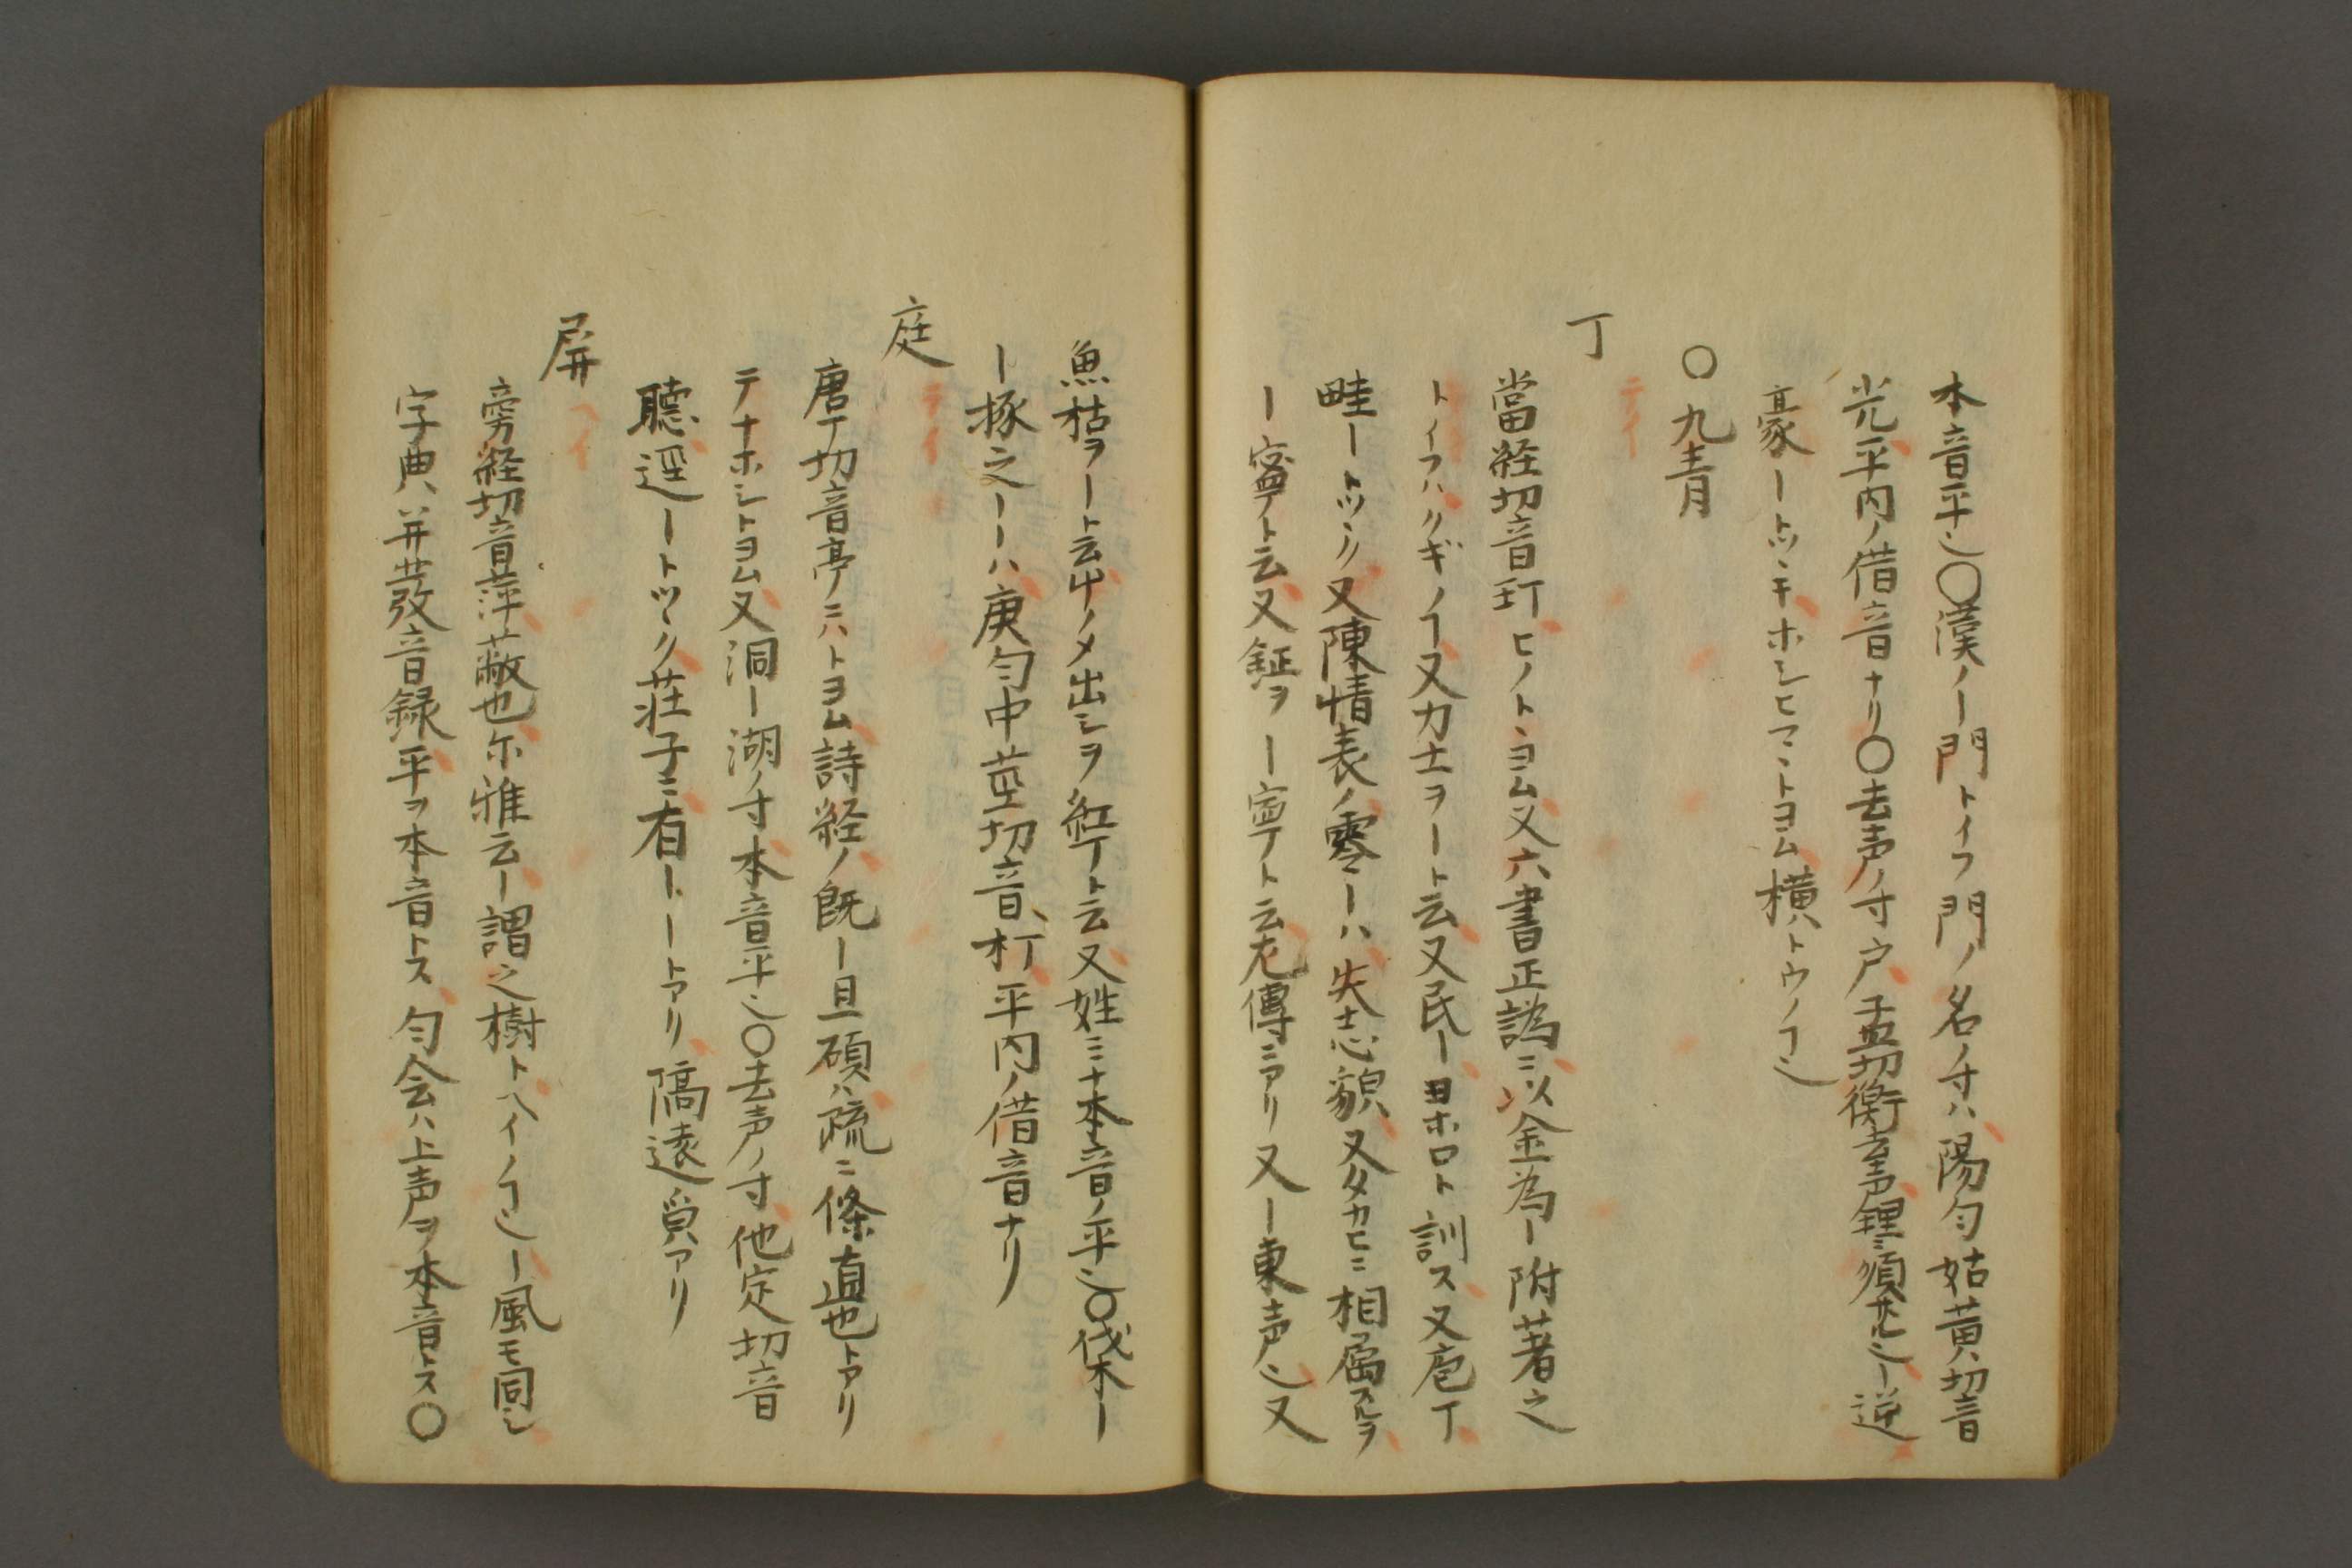 本音平也〇漢ノ―門トイフ門ノ名ノ寸ハ陽匀姑黄切音
光平内ノ借音ナリ〇去声ノ寸戸孟切衡去声理ニ須サル也―逆
豪―トツヽキホシヒマヽトヨム横トウノヿ也
〇九青
丁
テイ
當経切音玎ヒノトヨム又六書正譌ニ以金為―附著之
トイフハクギノヿ又力士ヲ―ト云又民―ヨホロト訓ス又庖丁
畦―トツヽク又陳情表ノ零―ハ失志貌又タカヒニ相属スルヲ
―寧ト云又鉦ヲ―寧ト云左傳ニアリ又―東声也又
魚枕ヲ―ト云ノメ出シヲ紅丁ト云又姓ニナ本音ノ平也〇伐木―
―椓之――ハ庚匀中莖切音、朾平内ノ借音ナリ
庭
テイ
唐丁切音亭ノニハトヨム詩経ノ既―且碩ハ疏ニ條直也トアリ
テナホシトヨム又洞―湖ノ寸本音平也〇去声ノ寸他定切音
聴逕―トツヽク荘子ニ有ト―トアリ隔遠皃アリ
屏
ヘイ
旁経切音萍蔽也尓雅云―謂之樹トヘイノヿ也―風モ同シ
字典ハ并茂音録平ヲ本音トス匀会ハ上声ヲ本音トス〇